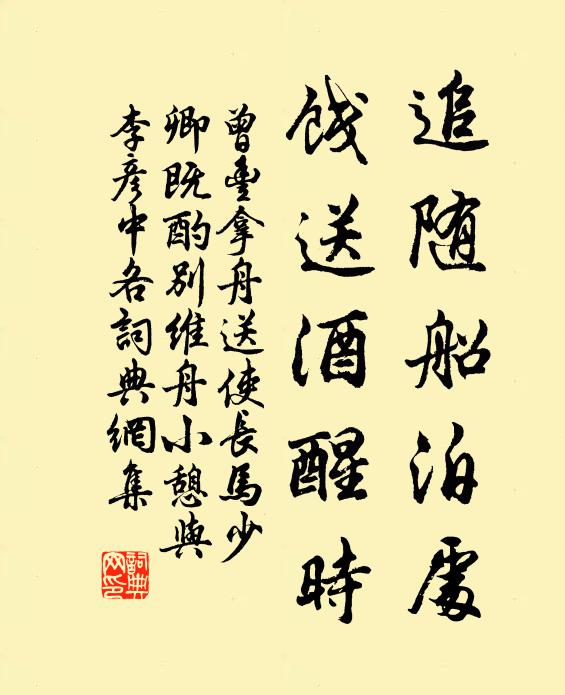 追随船泊處
饯送酒醒時
曾豐拿舟送使長馬少
卿既酌别維舟小憩與
李彦中各詞典網集
詞典
网印